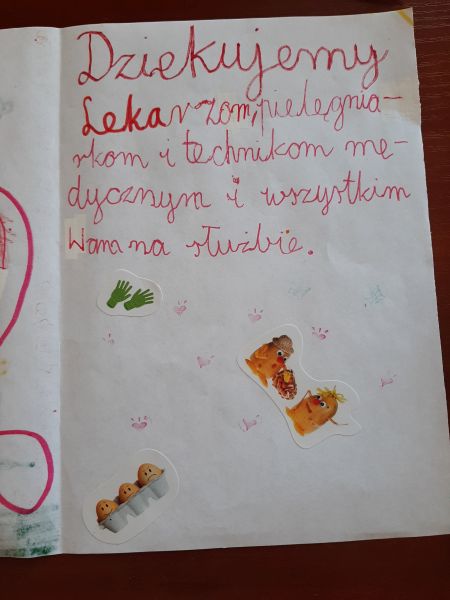 Dziekujemy
Lekarzom, pielęgnia-
rkom i technikom me-
dycznym i wszystkim
Wam na służbie.